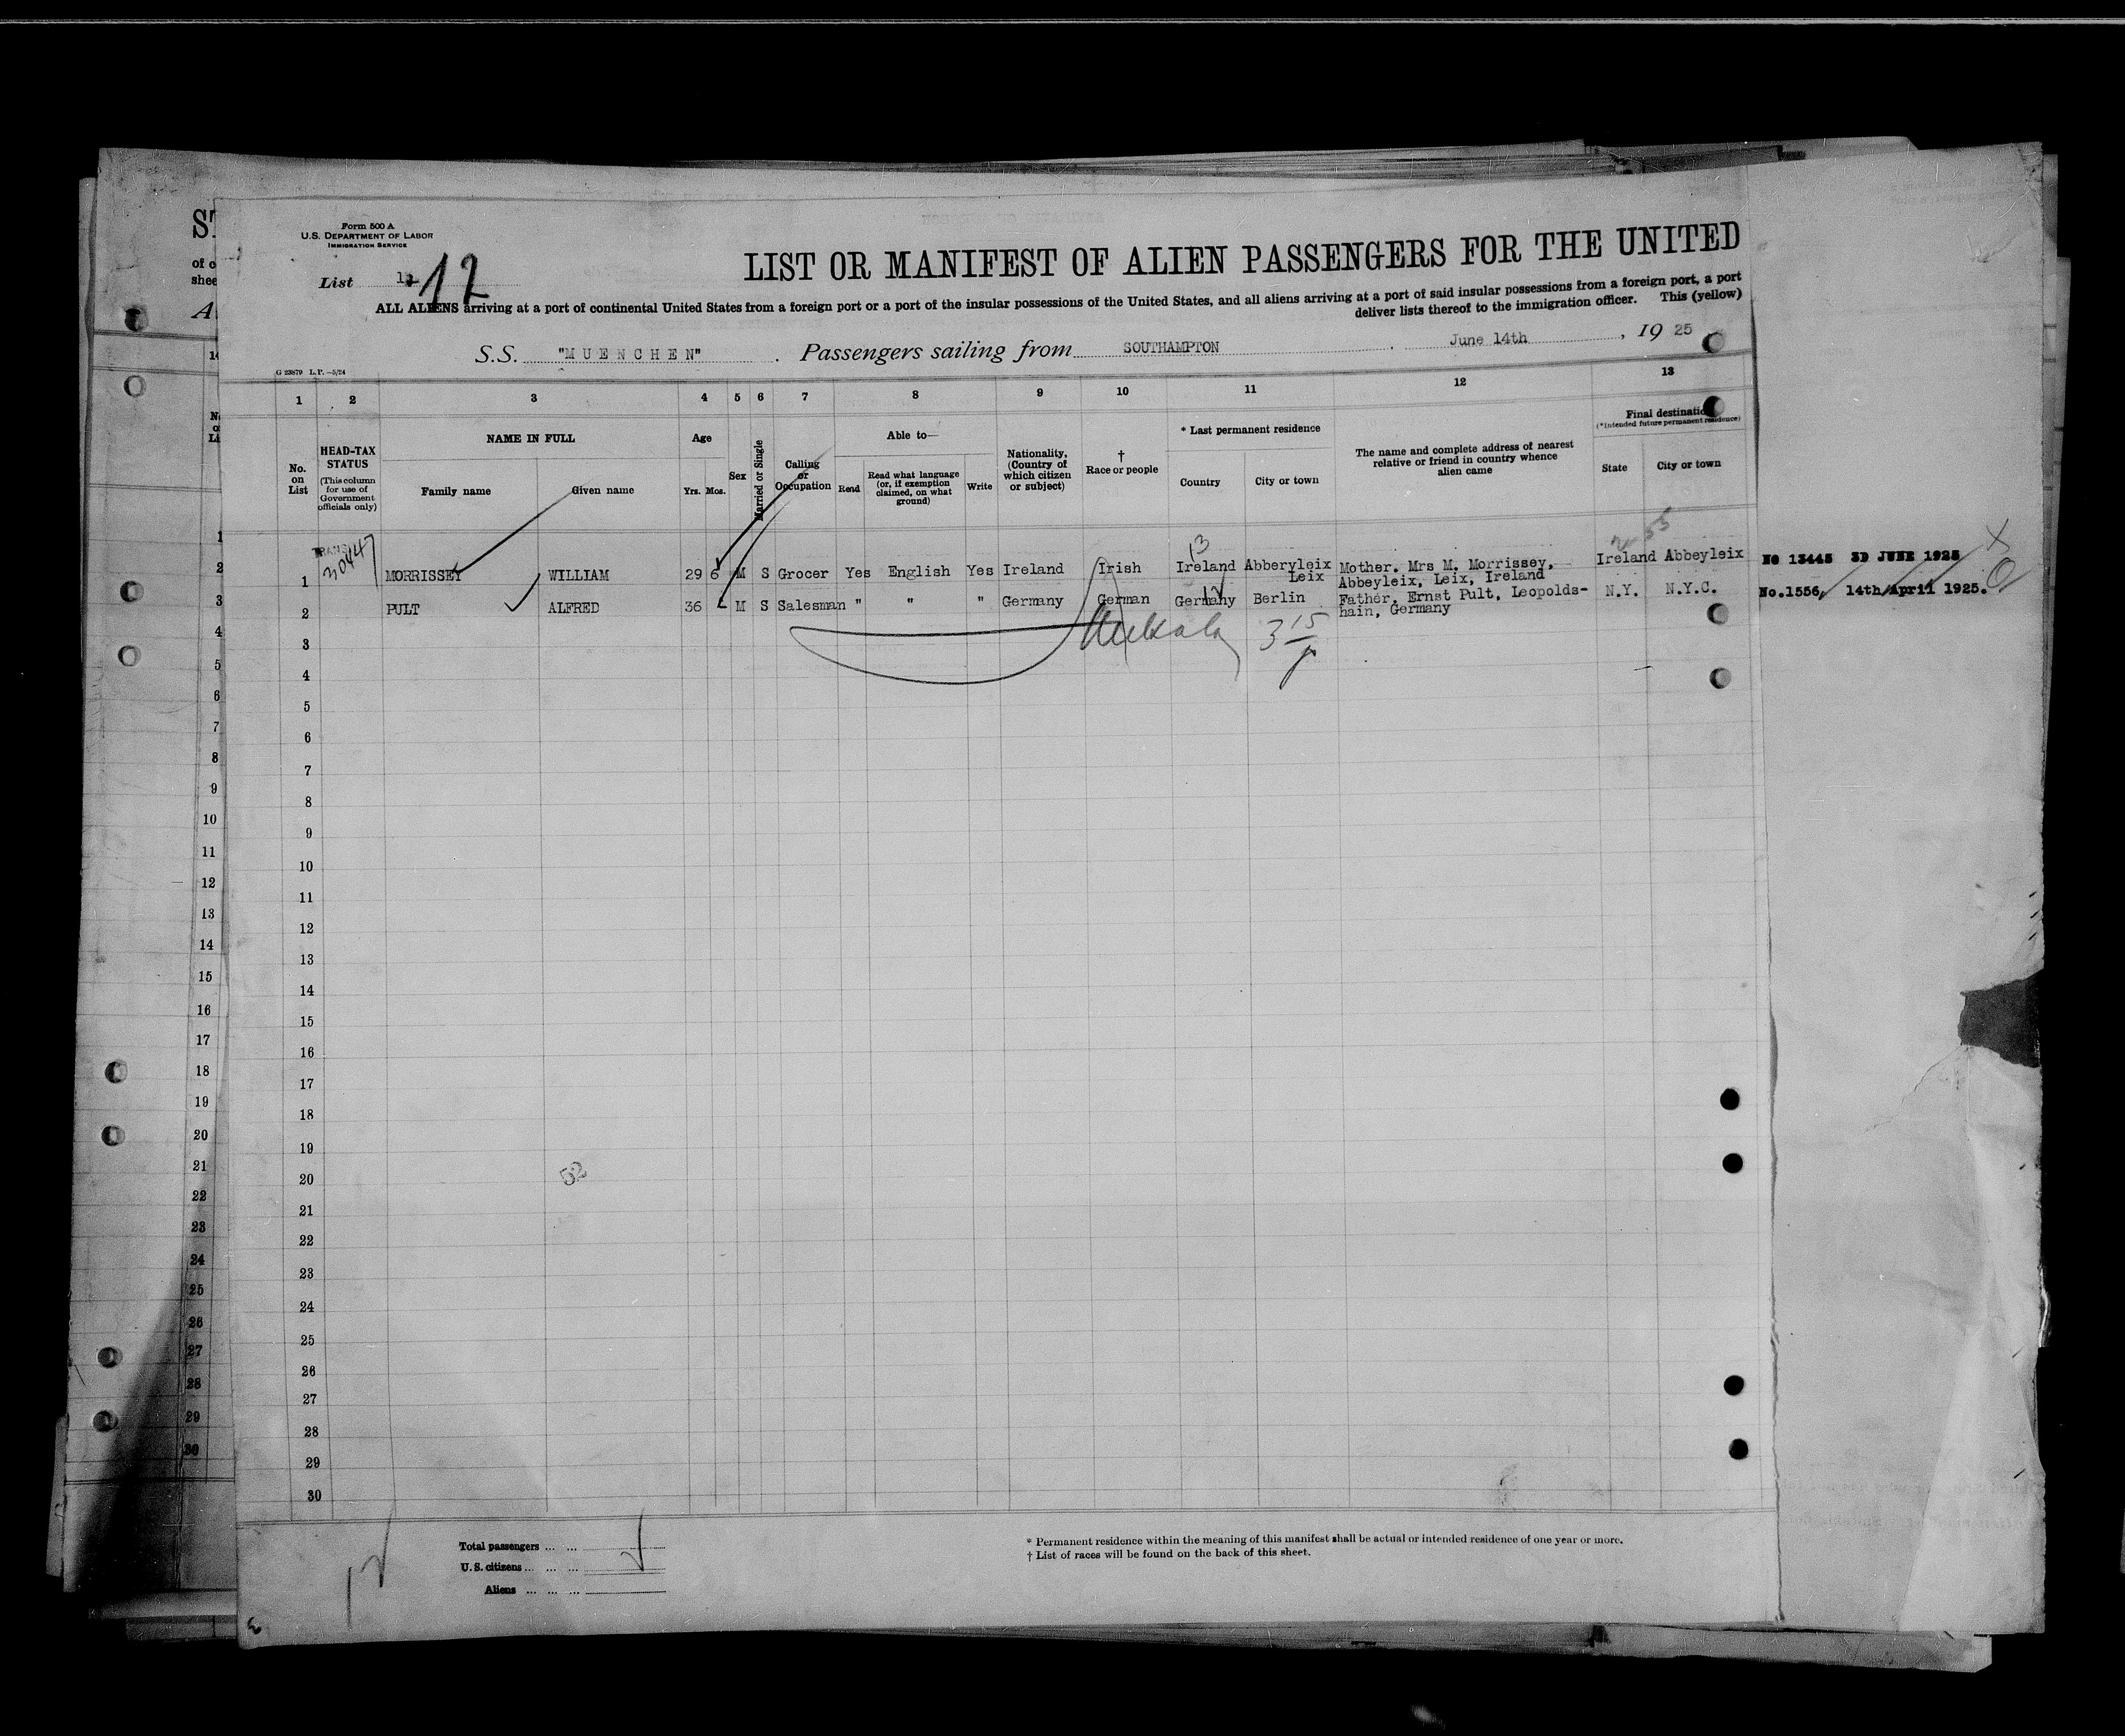 ST
of o
shee
A
Form 500 A
U.S. DEPARTMENT OF LABOR
IMMIGRATION SERVICE
List 12
LIST OR MANIFEST OF ALIEN PASSENGERS FOR THE UNITED
ALL ALIENS arriving at a port of continental United States from a foreign port or a port of the insular possessions of the United States, and all aliens arriving at a port of said insular possessions from a foreign port, a port
deliver lists thereof to the immigration officer. This (yellow)
S.S. "MUENCHEN" . Passengers sailing from SOUTHAMPTON . June 14th , 19 25
G 23879 L.P. —5/24
1 2 3 4 5 6 7 8 9 10 11 12 13
No. on List
HEAD-TAX STATUS
(This column for use of Government officials only)
NAME IN FULL
Family name Given name
Age
Yrs. Mos.
Sex
Married or Single
Calling or Occupation
Able to—
Read
Read what language (or, if exemption claimed, on what ground)
Write
Nationality, (Country of which citizen or subject)
† Race or people
* Last permanent residence
Country City or town
The name and complete address of nearest relative or friend in country whence alien came
Final destination
(*Intended future permanent residence)
State City or town
13
1 MORRISSEY WILLIAM 29 6 M S Grocer Yes English Yes Ireland Irish Ireland Abberyleix Leix Mother. Mrs M. Morrissey, Abbeyleix, Leix, Ireland Ireland Abbeyleix No 13445 3D JUNE 1925
2 PULT ALFRED 36 M S Salesman " " " Germany German Germany Berlin Father, Ernst Pult, Leopolds-hain, Germany N.Y. N.Y.C. No.1556, 14th April 1925.
3 15
3
4
5
6
7
8
9
10
11
12
13
14
15
16
17
18
19
20
52
21
22
23
24
25
26
27
28
29
30
Total passengers ... ...
U.S. citizens ... ... ...
Aliens ... ... ...
* Permanent residence within the meaning of this manifest shall be actual or intended residence of one year or more.
† List of races will be found on the back of this sheet.